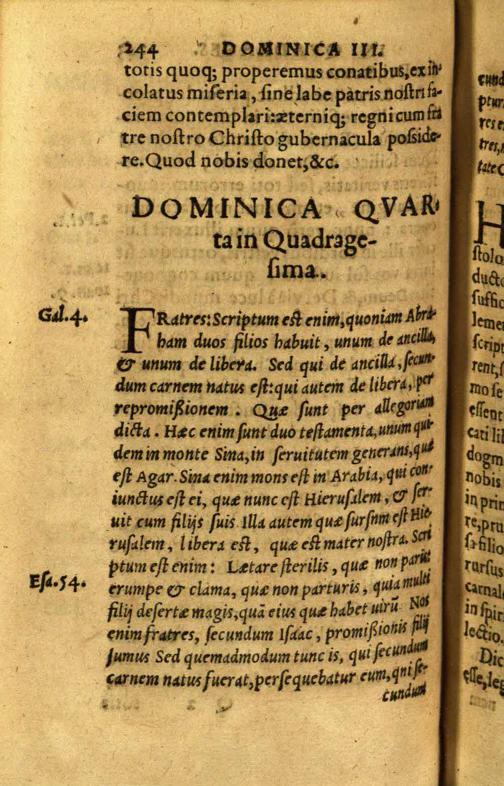 244 DOMINICA III.
totis quoq; properemus conatibus, ex in-
colatus miseria, sine labe patris nostri fa-
ciem contemplari: æterniq; regni cum fra
tre nostro Christo gubernacula posside-
re. Quod nobis donet, &c.
DOMINICA QVAR-
ta in Quadrage-
sima.
Gal. 4.
FRatres: Scriptum est enim, quoniam Abra
ham duos filios habuit, unum de ancilla,
& unum de libera. Sed qui de ancilla, secun
dum carnem natus est: qui autem de libera, per
repromißionem. Quæ sunt per allegoriam
dicta. Hæc enim sunt duo testamenta, unum qui
dem in monte Sina, in seruitutem generans, quæ
est Agar. Sina enim mons est in Arabia, qui con-
iunctus est ei, quæ nunc est Hierusalem, & ser-
uit cum filijs suis. Illa autem quæ sursnm est Hie
rusalem, libera est, quæ est mater nostra. Scri
ptum est enim: Lætare sterilis, quæ non paris
Esa. 54.
erumpe & clama, quæ non parturis, quia multi
filij desertæ magis, quã eius quæ habet uirũ. Nos
enim fratres, secundum Isaac, promißionis filij
sumus Sed quemadmodum tunc is, qui secundum
carnem natus fuerat, persequebatur eum, qui se-
cundum